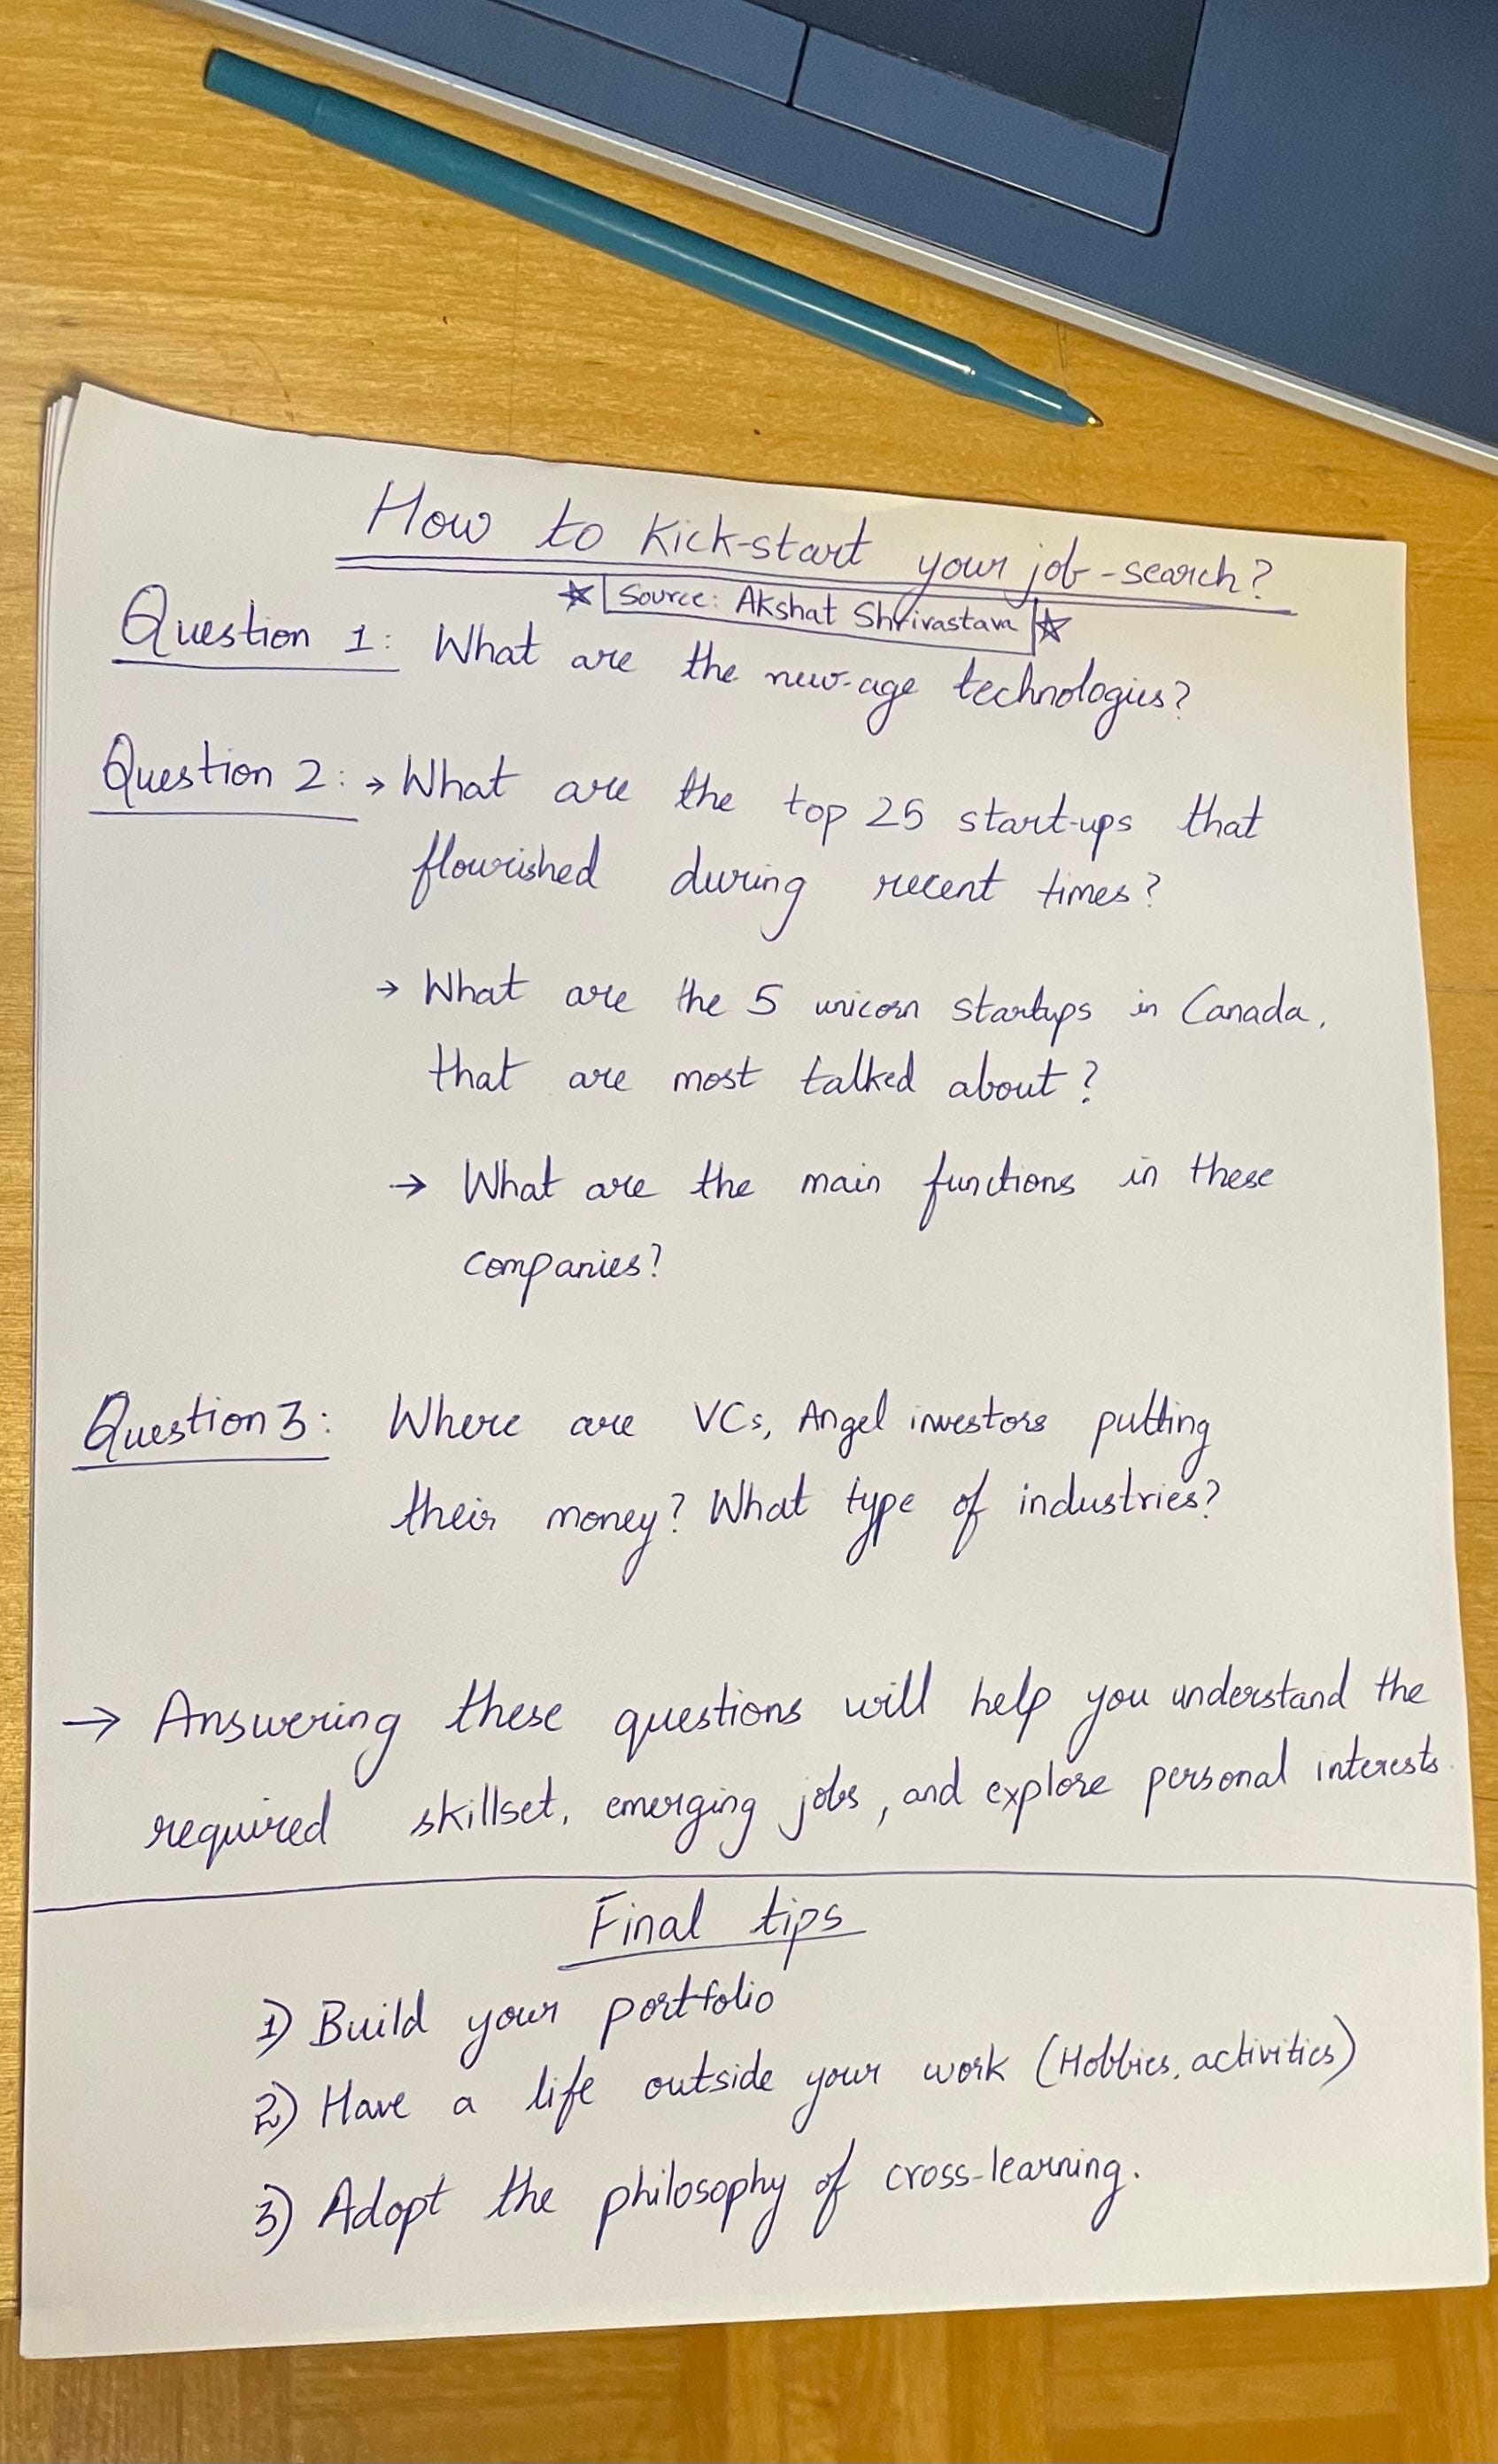 How to Kick-start your job-search?
☆ Source: Akshat Shrivastava ☆
Question 1: What are the new-age technologies?
Question 2: → What are the top 25 start-ups that
flourished during recent times?
→ What are the 5 unicorn startups in Canada,
that are most talked about?
→ What are the main functions in these
companies?
Question 3: Where are VCs, Angel investors putting
their money? What type of industries?
→ Answering these questions will help you understand the
required skillset, emerging jobs, and explore personal interests.
Final tips
1) Build your portfolio
2) Have a life outside your work (Hobbies, activities)
3) Adopt the philosophy of cross-learning.